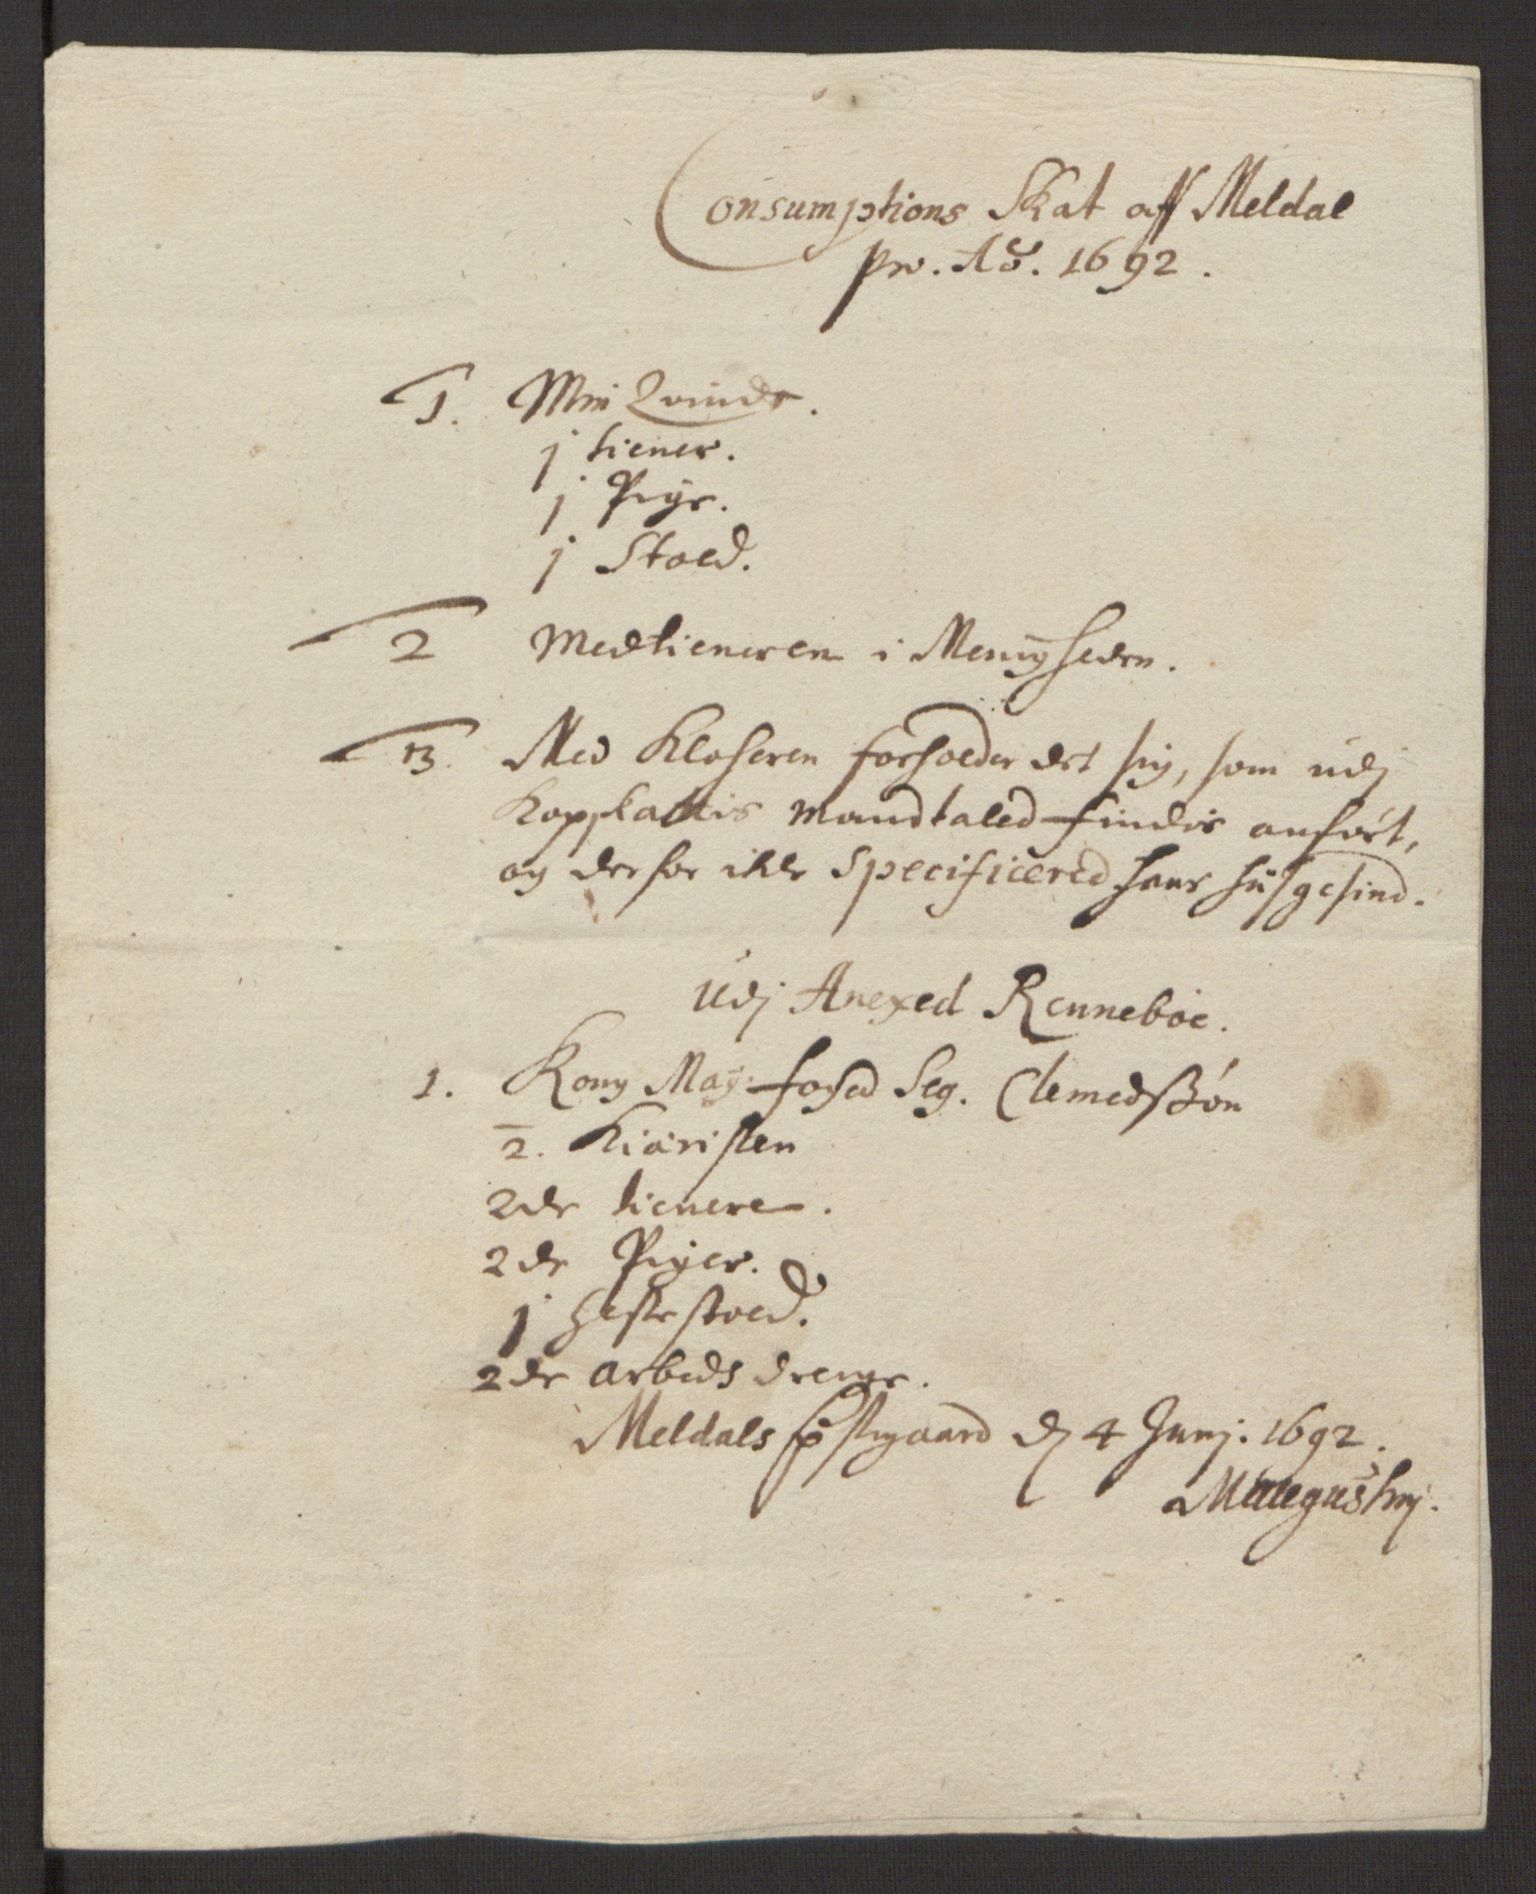 Consumptions Skat aff Meldal
pro. Ao. 1692.
1. Min Qvinde.
j tiener.
j Pige.
j Stoed.
2 Medtieneren i Menigheden.
3. Med Klocheren forholder det sig, som udj
Kopskattis Mandtaled findis anført,
og derfor ikke Specificered hans husgesind.
Udj Anexed Renneboe.
1. Kong May: foged Seg. Clemedsßøn
2. Kiæristen
2de tienere.
2de Piger.
j Hestestoed.
2de arbeds drenge.
Meldals præstegaard d 4 Junj: 1692.